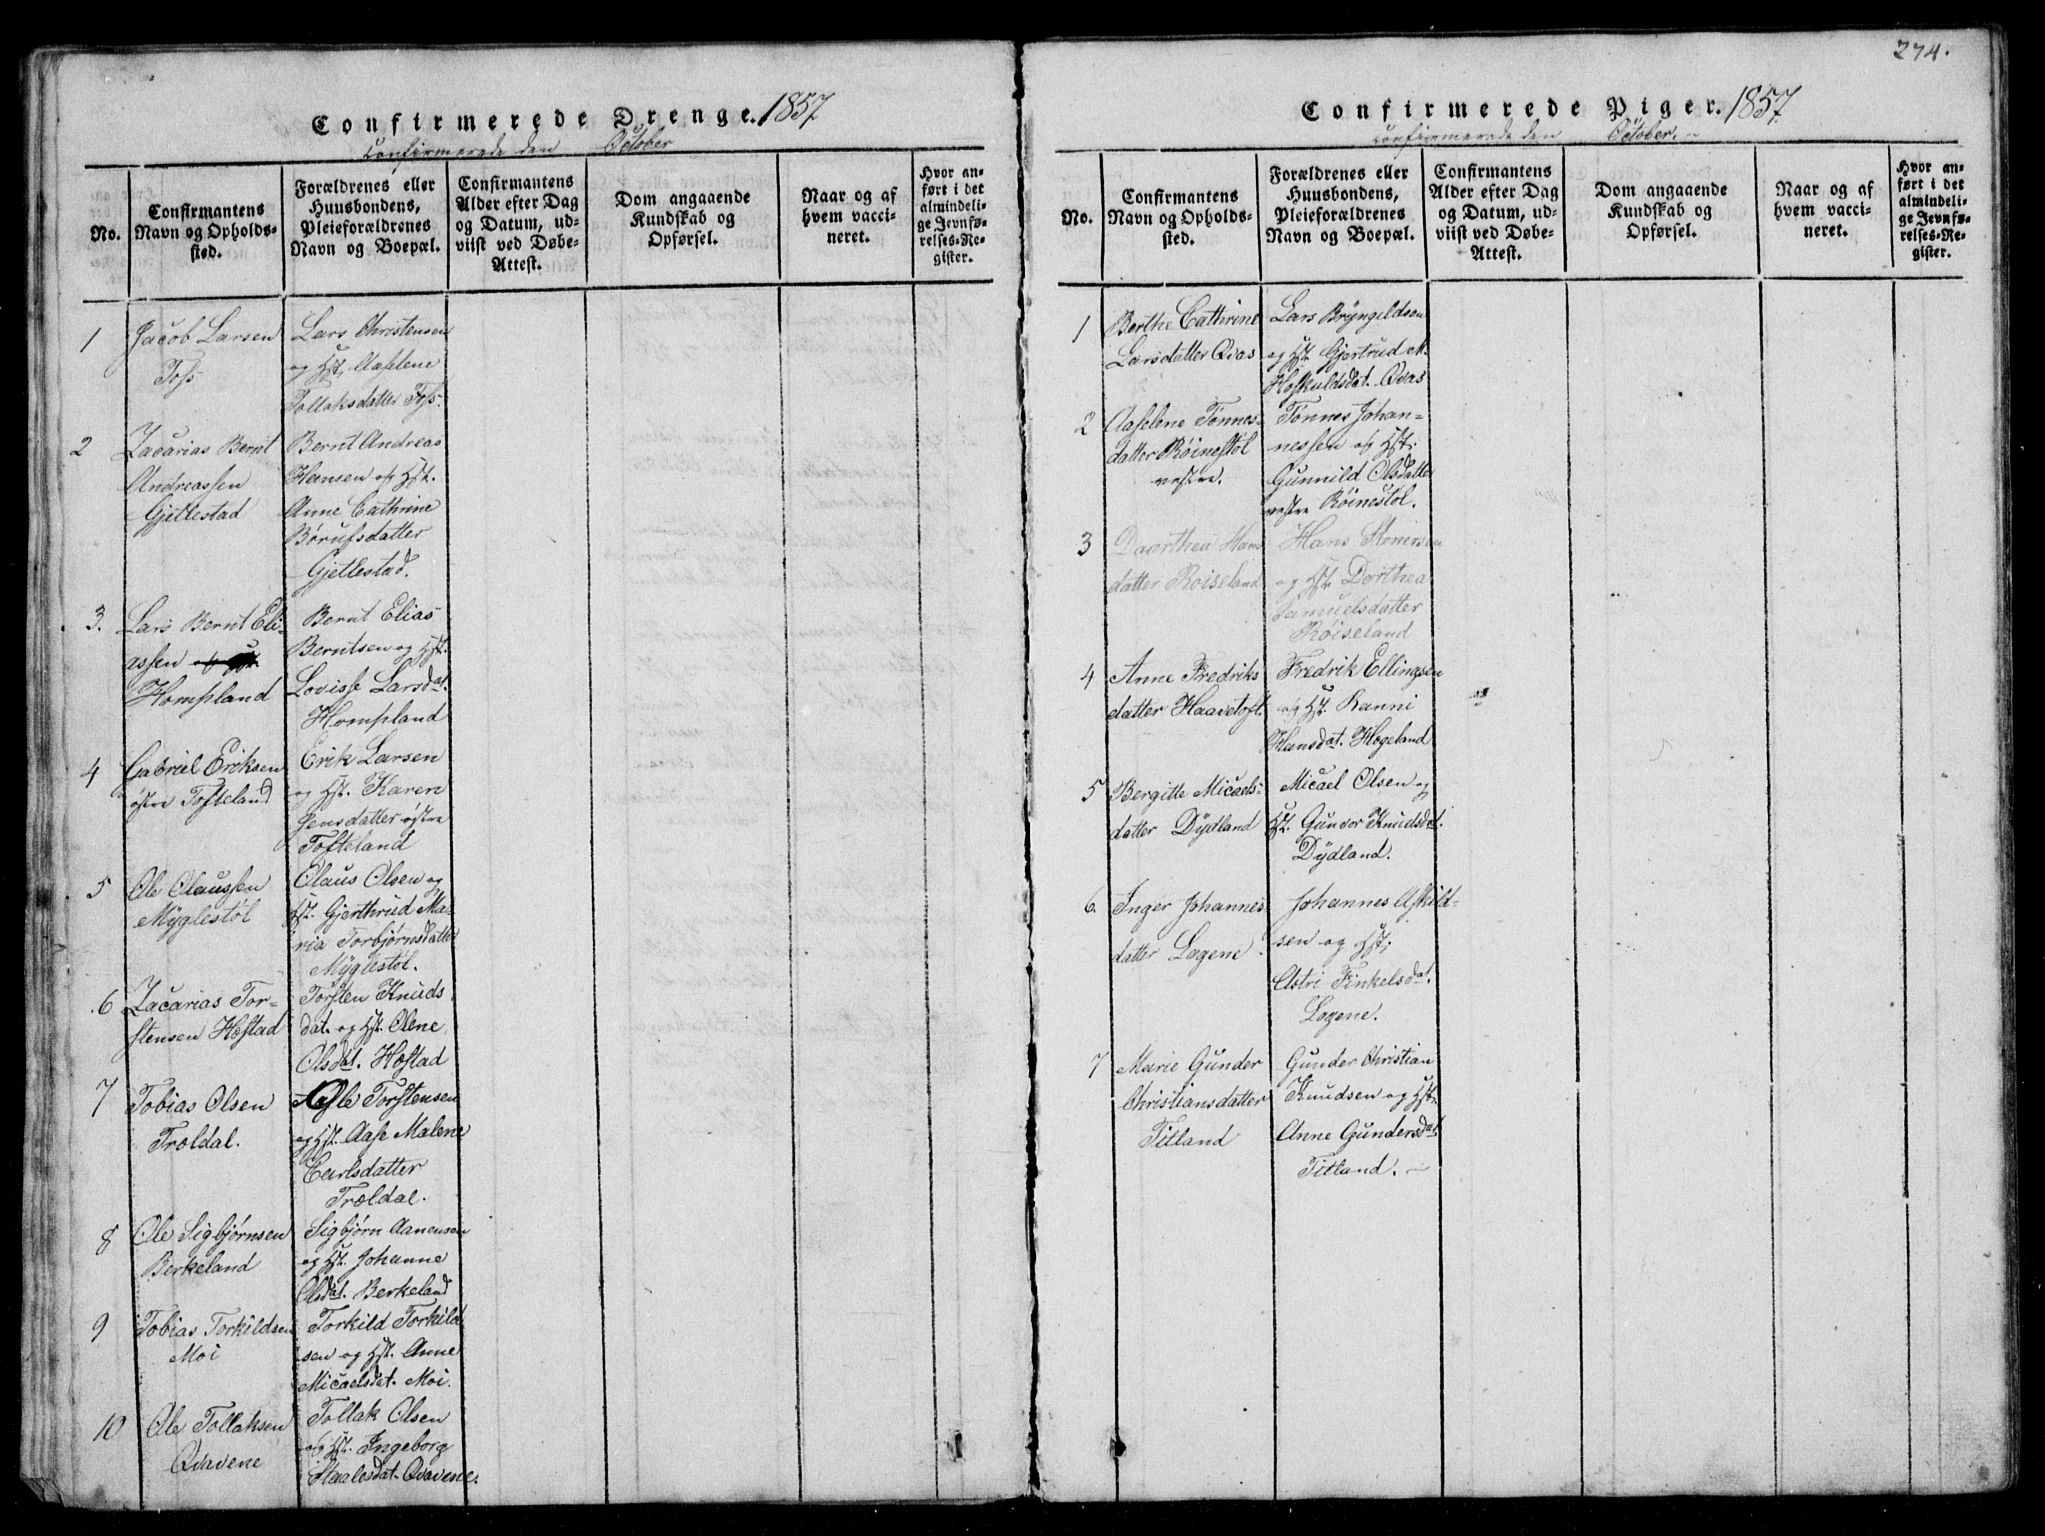 Confirmerede Drenge. 1857
Confirmerede den October
No.
Confirmantens
Navn og Opholds-
sted.
Forældrenes eller
Huusbondens,
Pleieforældrenes
Navn og Boepæl.
Confirmantens
Alder efter Dag
og Datum, ud-
viist ved Døbe-
Attest.
Dom angaaende
Kundskab og
Opførsel.
Naar og af
hvem vacci-
neret.
Hvor an-
ført i det
almindeli-
ge Jevnfø-
relses-Re-
gister.
1
Jacob Larsen
Foss
Lars Christensen
og Hst. Aaslene
Tollaksdatter Foss.
2
Zacarias Bernt
Andreassen
Gjellestad
Bernt Andreas
Hansen og Hst.
Anne Cathrine
Børufsdatter
Gjellestad.
3.
Lars Bernt Eli-
assen
Hompland
Bernt Elias
Berntsen og Hst.
Lovisse Larsdat.
Hompland
4
Gabriel Eriksen
østre Tofteland
Erik Larsen
og Hst. Karen
Jensdatter østre
Tofteland
5
Ole Olaussen
Myglestøl
Olaus Olsen og
Hst. Gjerthrud Ma-
ria Torbjørnsdatter
Myglestøl.
6
Zacarias Tor-
stensen Høstad
Torsten Knuds
dat. og Hst. Olene
Olsdat. Høstad
7
Tobias Olsen
Trældal.
Ole Torstensen
og Hst. Aase Malene
Carlsdatter
Trældal.
8
Ole Sigbjørnsen
Berkeland
Sigbjørn Aanensen
og Hst. Johanne
Olsdat. Berkeland
9
Tobias Torkildsen
Moi
Torkild Torkild
sen og Hst. Anne
Micaelsdat. Moi.
10
Ole Tollaksen
Qvavene
Tollak Olsen
og Hst. Ingeborg
Staalesdat. Qvavene.
274.
Confirmerede Piger. 1857
Confirmerede den October.
No.
Confirmantens
Navn og Opholds-
sted.
Forældrenes eller
Huusbondens,
Pleieforældrenes
Navn og Boepæl.
Confirmantens
Alder efter Dag
og Datum, ud-
viist ved Døbe-
Attest.
Dom angaaende
Kundskab og
Opførsel.
Naar og af
hvem vacci-
neret.
Hvor an-
ført i det
almindeli-
ge Jevnfø-
relses-Re-
gister.
1
Berthe Cathrine
Larsdatter Qvas
Lars Bryngeldsen
og Hst. Gjertrud M.
Hoskuldsdat. Qvas
2
Aaselene Tønnes-
datter Røinestøl
vestre.
Tønnes Johan-
nessen og Hst.
Gunnild Olsdatter
vestre Røinestøl.
3
Daarthea Hans
datter Røiseland
Hans Stenersen
og Hst. Dorthea
Samuelsdatter
Røiseland
4
Anne Fredriks
datter Haavetoft.
Fredrik Ellingsen
og Hst. Kanni
Hansdat. Høgeland
5
Bergitte Micaels-
datter Dydland
Micael Olsen og
Hst. Gunvor Knudsdat.
Dydland.
6.
Inger Johannes-
datter Løgene
Johannes Askild-
sen og Hst.
Astri Finkelsdat.
Løgene.
7
Marie Gunder
Christiansdatter
Titland
Gunder Christian
Knudsen og Hst.
Anne Gundersdat
Titland.